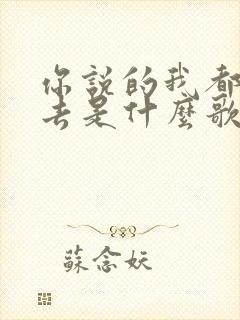 你說的我都
去是什麼歌
蘇念妖